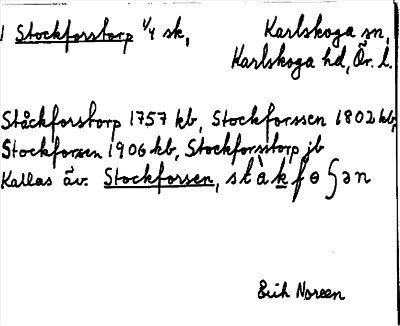 1 Stockforstorp 1/4 sk, Karlskoga sn,
Karlskoga hd, Ör. l.
Ståckforstorp 1757 kb, Stockforssen 1802 kb,
Stockforsen 1906 kb, Stockforsstorp jb
Kallas äv. Stockforsen, stàkfoʃən
Erik Noreen